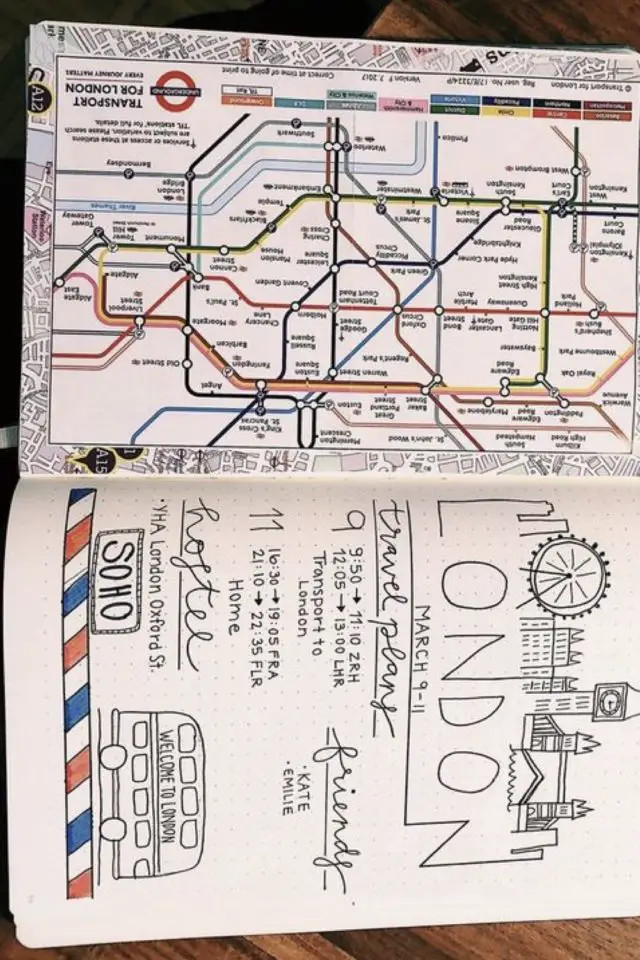 LONDON
MARCH 9-11
travel plans
9
9:50 → 11:10 ZRH
12:05 → 13:00 LHR
Transport to
London
11
16:30 → 19:05 FRA
21:10 → 22:35 FLR
Home
friends
• KATE
• EMILIE
hostel
• YHA London Oxford St.
SOHO
WELCOME TO LONDON
A15
Kilburn
High Road
South
Hampstead
St. John's Wood
Mornington
Crescent
King's Cross
St. Pancras
Warwick
Avenue
Paddington
Edgware
Road
Marylebone
Baker
Street
Great
Portland
Street
Euston
Angel
Royal Oak
Westbourne Park
Edgware
Road
Warren Street
Euston
Square
Farringdon
Old Street
Bayswater
Regent's Park
Russell
Square
Barbican
Moorgate
Liverpool
Street
Shepherd's
Bush
Holland
Park
Notting
Hill Gate
Queensway
Lancaster
Gate
Marble
Arch
Bond
Street
Oxford
Circus
Tottenham
Court Road
Goodge
Street
Holborn
Chancery
Lane
St. Paul's
Bank
Aldgate
East
Aldgate
High Street
Kensington
Hyde Park Corner
Knightsbridge
Green Park
Piccadilly
Circus
Leicester
Square
Covent Garden
Cannon
Street
Monument
Tower
Hill
Tower
Gateway
Kensington
(Olympia)
Barons
Court
Earl's
Court
Gloucester
Road
South
Kensington
Sloane
Square
Victoria
St. James's
Park
Westminster
Charing
Cross
Embankment
Temple
Blackfriars
Mansion
House
River Thames
West
Kensington
West Brompton
Pimlico
Waterloo
Southwark
London
Bridge
Bermondsey
Metropolitan
Bakerloo
Central
Northern
Piccadilly
Circle
District
Victoria
Hammersmith
& City
Jubilee
Waterloo & City
DLR
Overground
TfL Rail
† Services or access at these stations
are subject to variation. Please search
'TfL stations' for full details.
© Transport for London
Reg. user No. 17/E/3224/P
Version F 7.2017
Correct at time of going to print
UNDERGROUND
TRANSPORT
FOR LONDON
EVERY JOURNEY MATTERS
A12